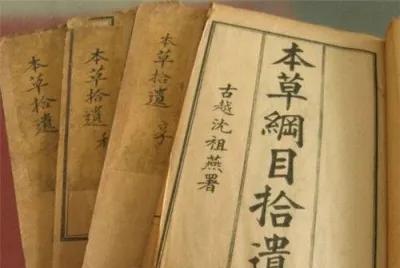 本草拾遺
本草拾遺
本草拾遺
本草綱目拾遺
古越沈祖燕署